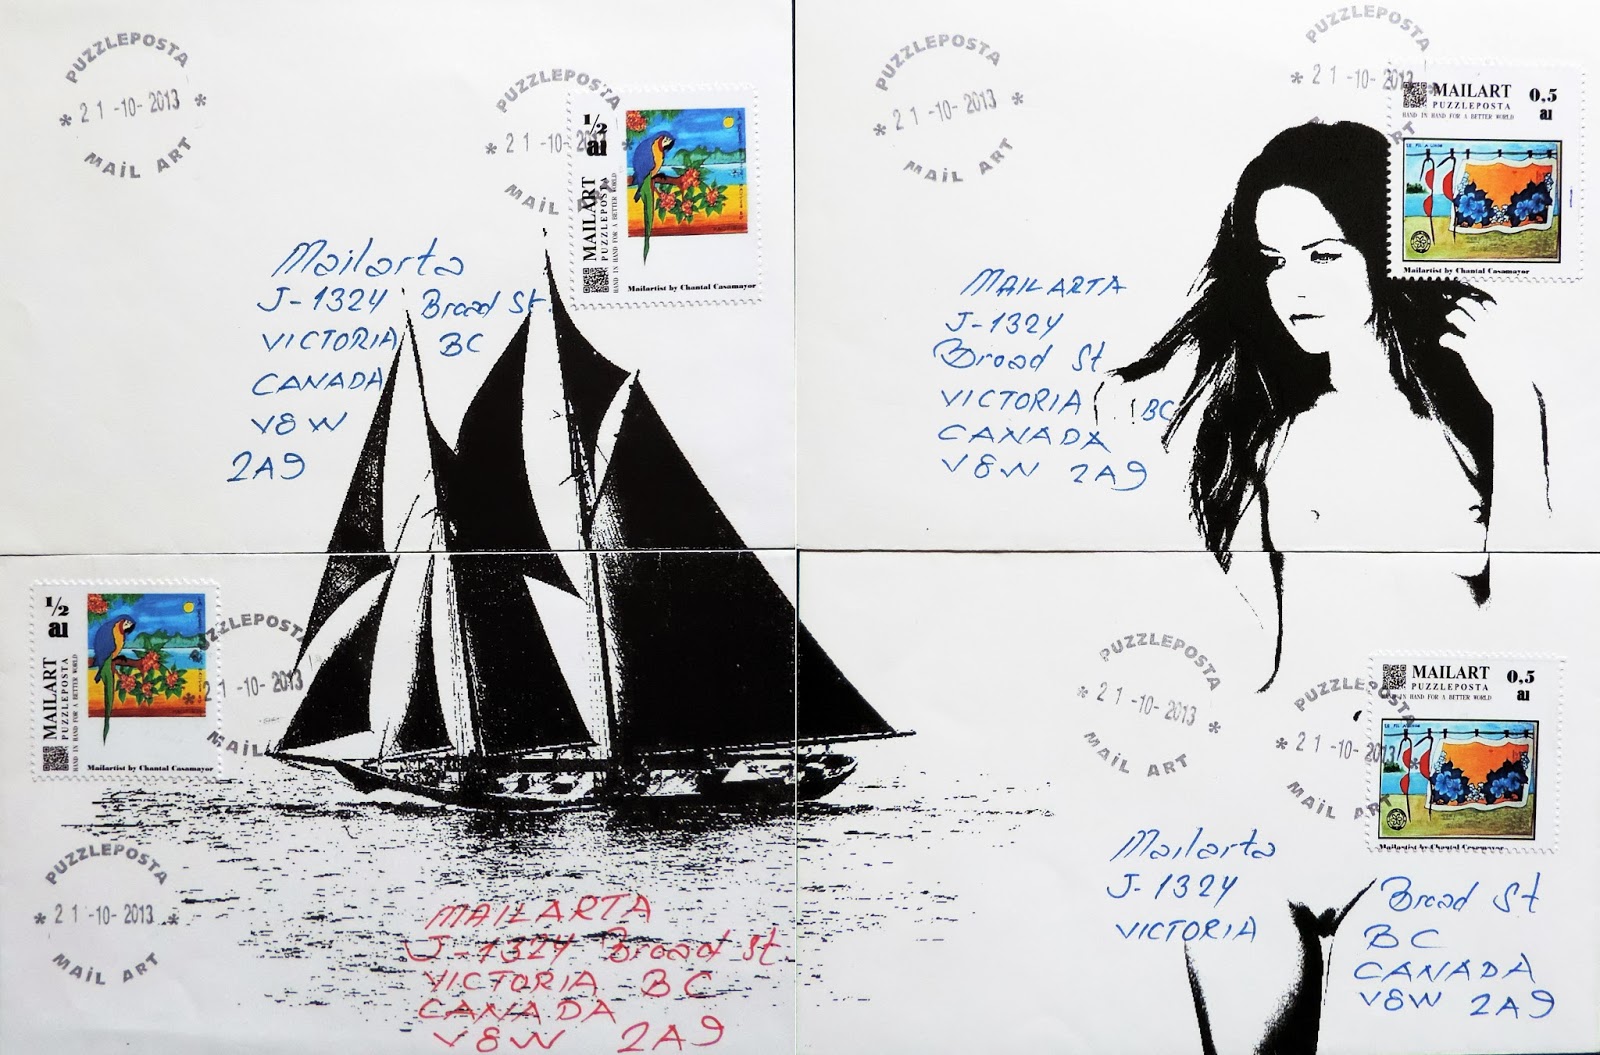 PUZZLEPOSTA
* 21-10-2013 *
MAiL ART
PUZZLEPOSTA
* 21-10-2013 *
MAiL ART
1/2
aı
MAILART
PUZZLEPOSTA
HAND IN HAND FOR A BETTER WORLD
Mailartist by Chantal Casamayor
Mailarta
J-1324 Broad St
VICTORIA BC
CANADA
V8W
2A9
PUZZLEPOSTA
* 21-10-2013 *
MAiL ART
PUZZLEPOSTA
* 21-10-2013
ART
MAILART
PUZZLEPOSTA
HAND IN HAND FOR A BETTER WORLD
0,5
aı
LE FIL A LINGE
Mailartist by Chantal Casamayor
MAILARTA
J-1324
Broad St
VICTORIA BC
CANADA
V8W 2A9
1/2
aı
MAILART
PUZZLEPOSTA
HAND IN HAND FOR A BETTER WORLD
Mailartist by Chantal Casamayor
PUZZLEPOSTA
* 21-10-2013
MAiL
PUZZLEPOSTA
* 21-10-2013 *
MAiL ART
MAILARTA
J-1324 Broad St
VICTORIA BC
CANADA
V8W 2A9
PUZZLEPOSTA
* 21-10-2013 *
MAiL ART
PUZZLEPOSTA
* 21-10-2013 *
MAiL ART
MAILART
PUZZLEPOSTA
HAND IN HAND FOR A BETTER WORLD
0,5
aı
LE FIL A LINGE
Mailartist by Chantal Casamayor
Mailarta
J-1324 Broad St
VICTORIA BC
CANADA
V8W 2A9